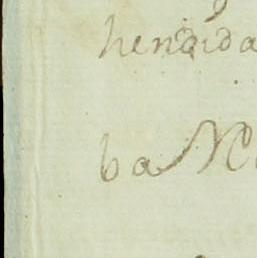 hendida
ba